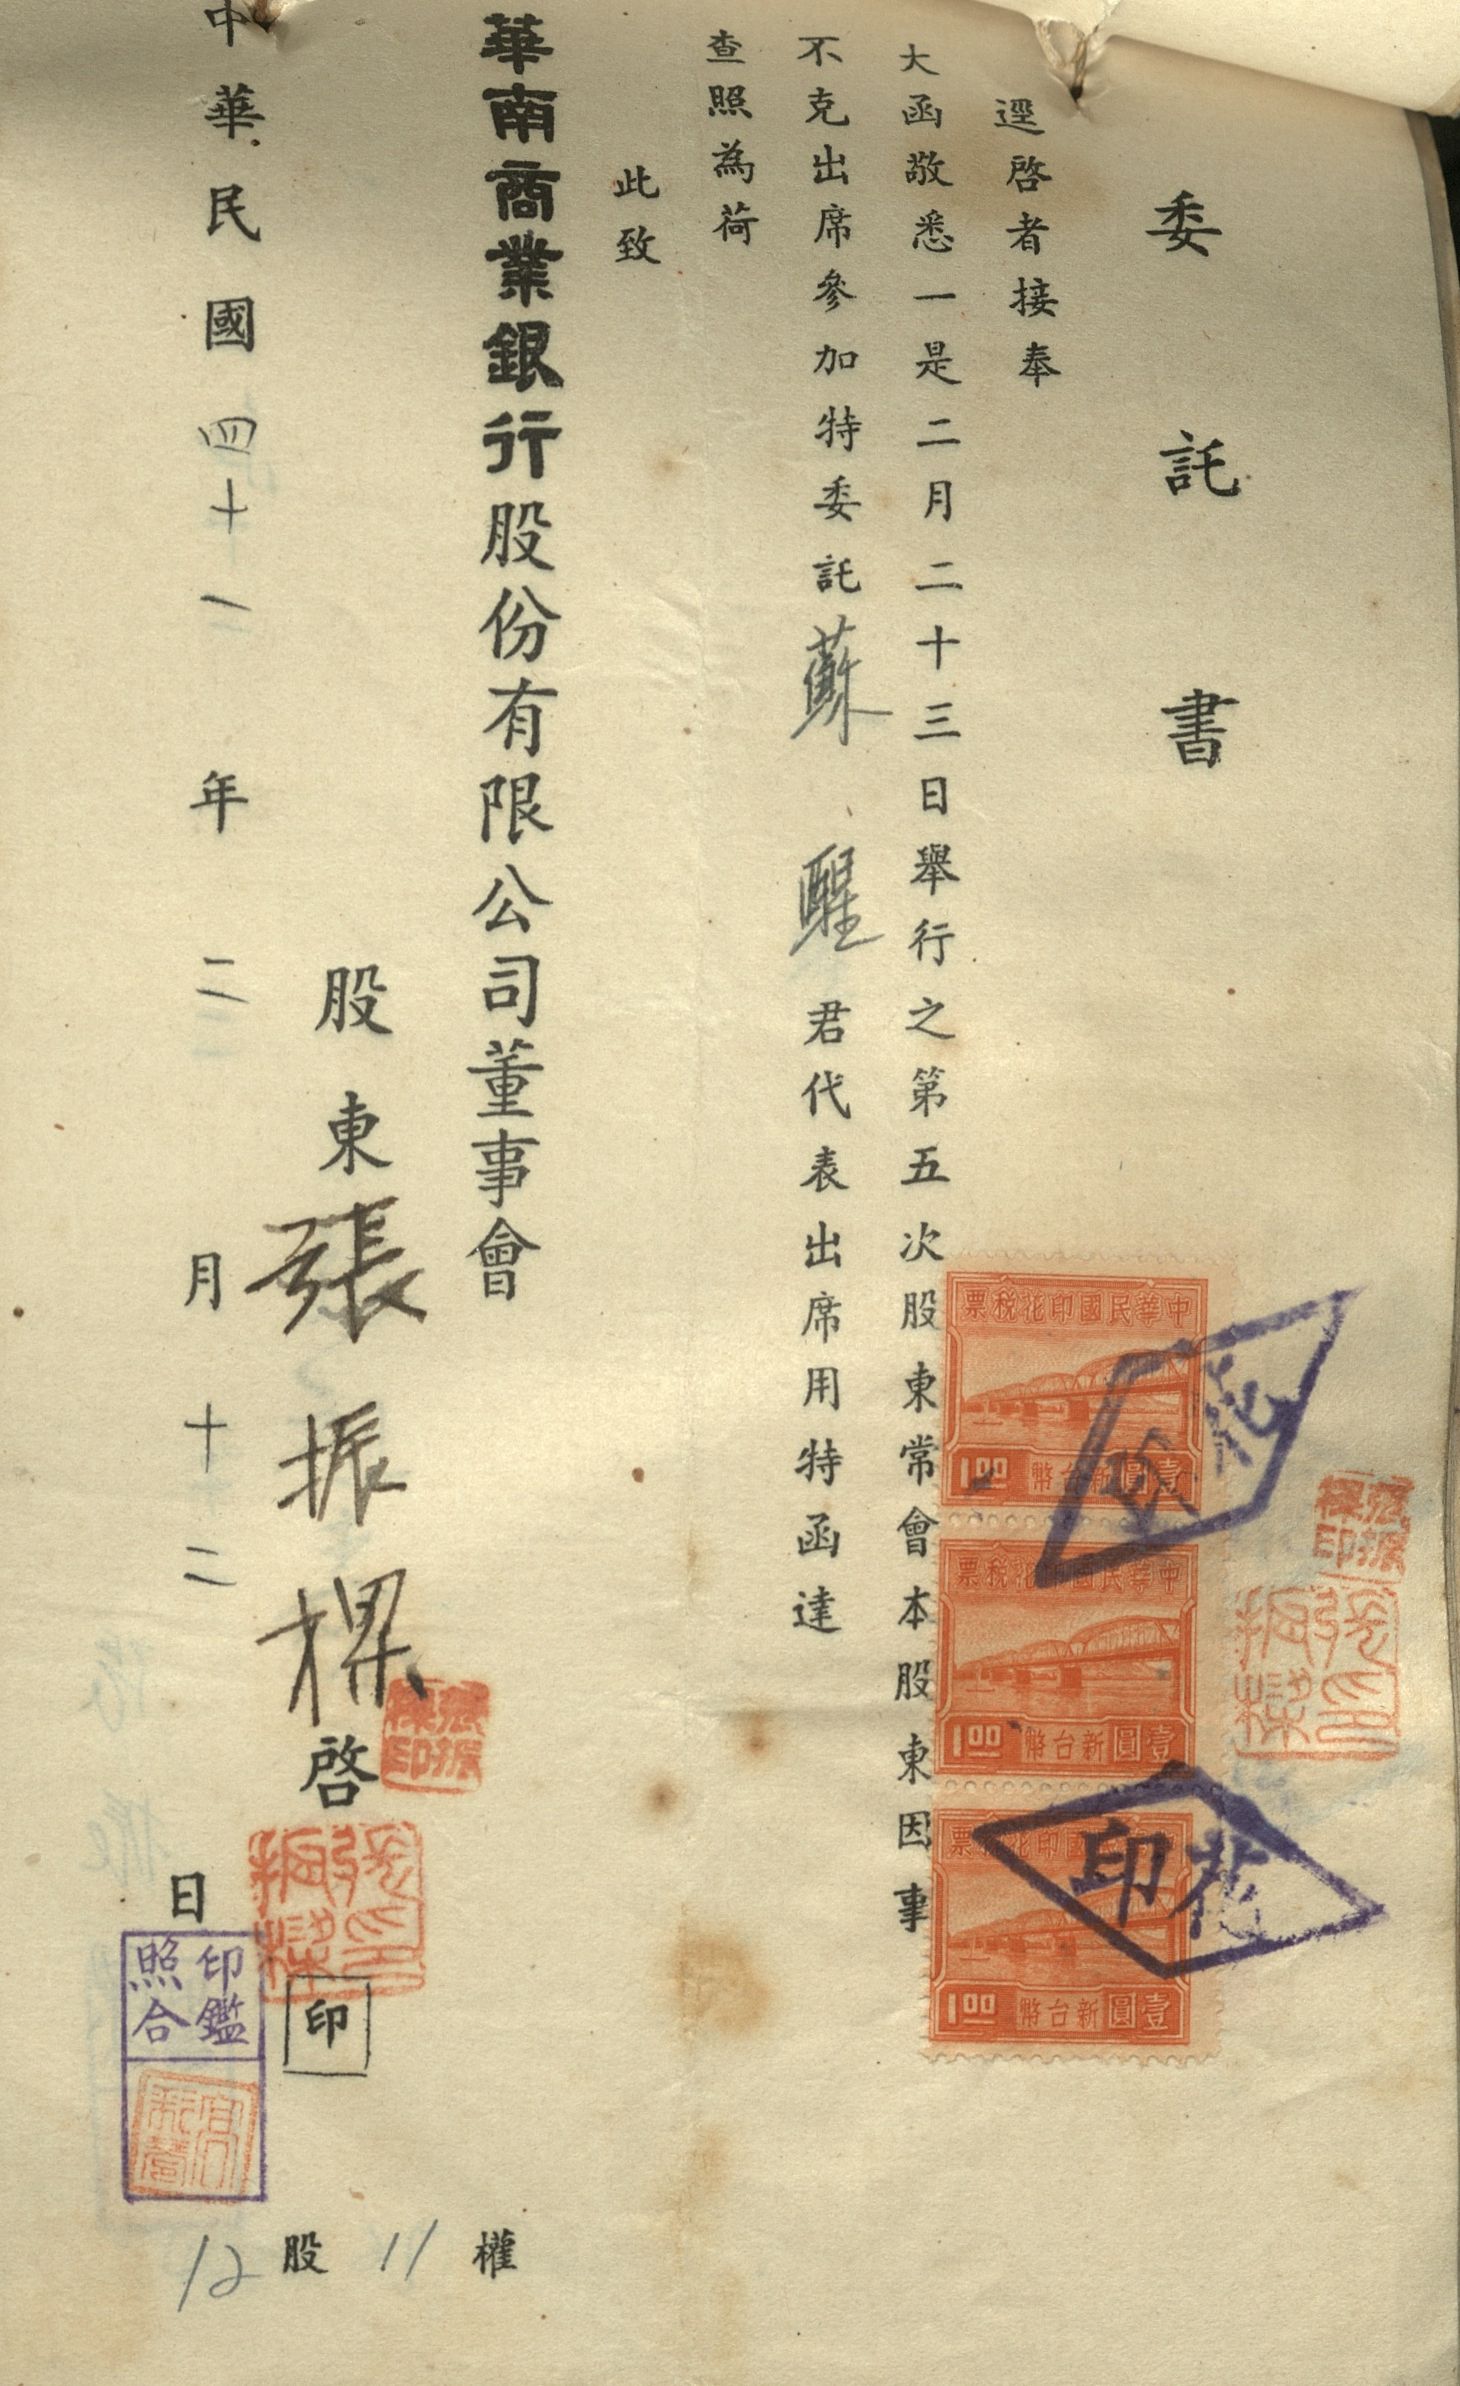 委託書
逕啓者接奉
大函敬悉一是二月二十三日舉行之第五次股東常會本股東因事
不克出席參加特委託蘇醒君代表出席用特函達
查照為荷
此致
華南商業銀行股份有限公司董事會
股東張振樑啓
印
中華民國四十一年二月十二日
12股11權
中華民國印花稅票
壹圓新台幣1.00
中華民國印花稅票
壹圓新台幣1.00
國印花稅票
壹圓新台幣1.00
花印
花印
張振樑印
張振樑印
張振樑印
張振樑印
印鑑照合